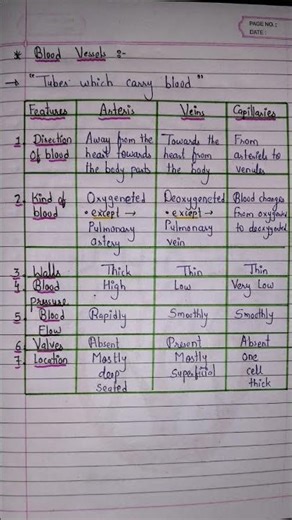 PAGE NO.:
DATE:
* Blood Vessels :-
→ "Tubes which carry blood"
Features Arteris Veins Capillaries
1. Direction Away from the Towards the From
Of blood heart towards heart from arteriels to
the body parts the body venules
2. Kind of Oxygeneted Deoxygeneted Blood changes
blood • except → • except → From oxygeneted
Pulmonary Pulmonary to deoxygeneted
artery vein
3. Walls Thick Thin Thin
4. Blood High Low Very Low
Pressure
5. Blood Rapidly Smoothly Smoothly
Flow
6. Valves Absent Present Absent
7. Location Mostly Mostly one
deep superficial cell
seated thick